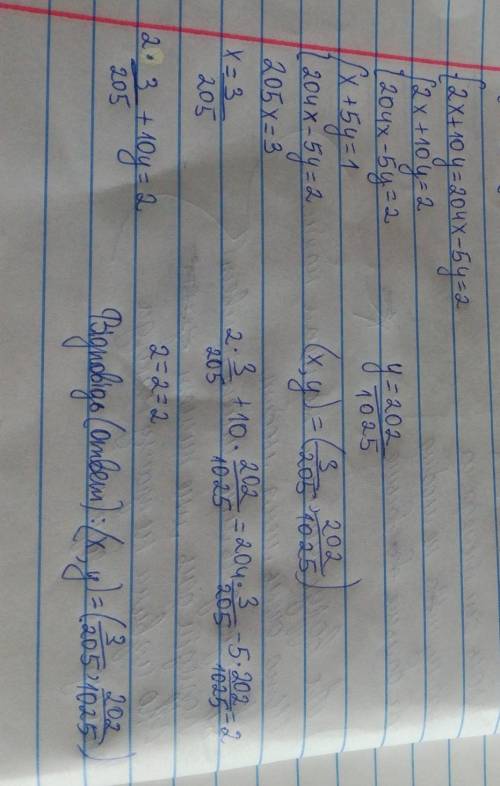 {2x+10y=204x-5y=2
{2x+10y=2
{204x-5y=2
{x+5y=1
{204x-5y=2
205x=3
x=3/205
2·3/205+10y=2
y=202/1025
(x,y)=(3/205, 202/1025)
2·3/205+10·202/1025=204·3/205-5·202/1025=2
2=2=2
Відповідь (ответ): (x,y)=(3/205, 202/1025)